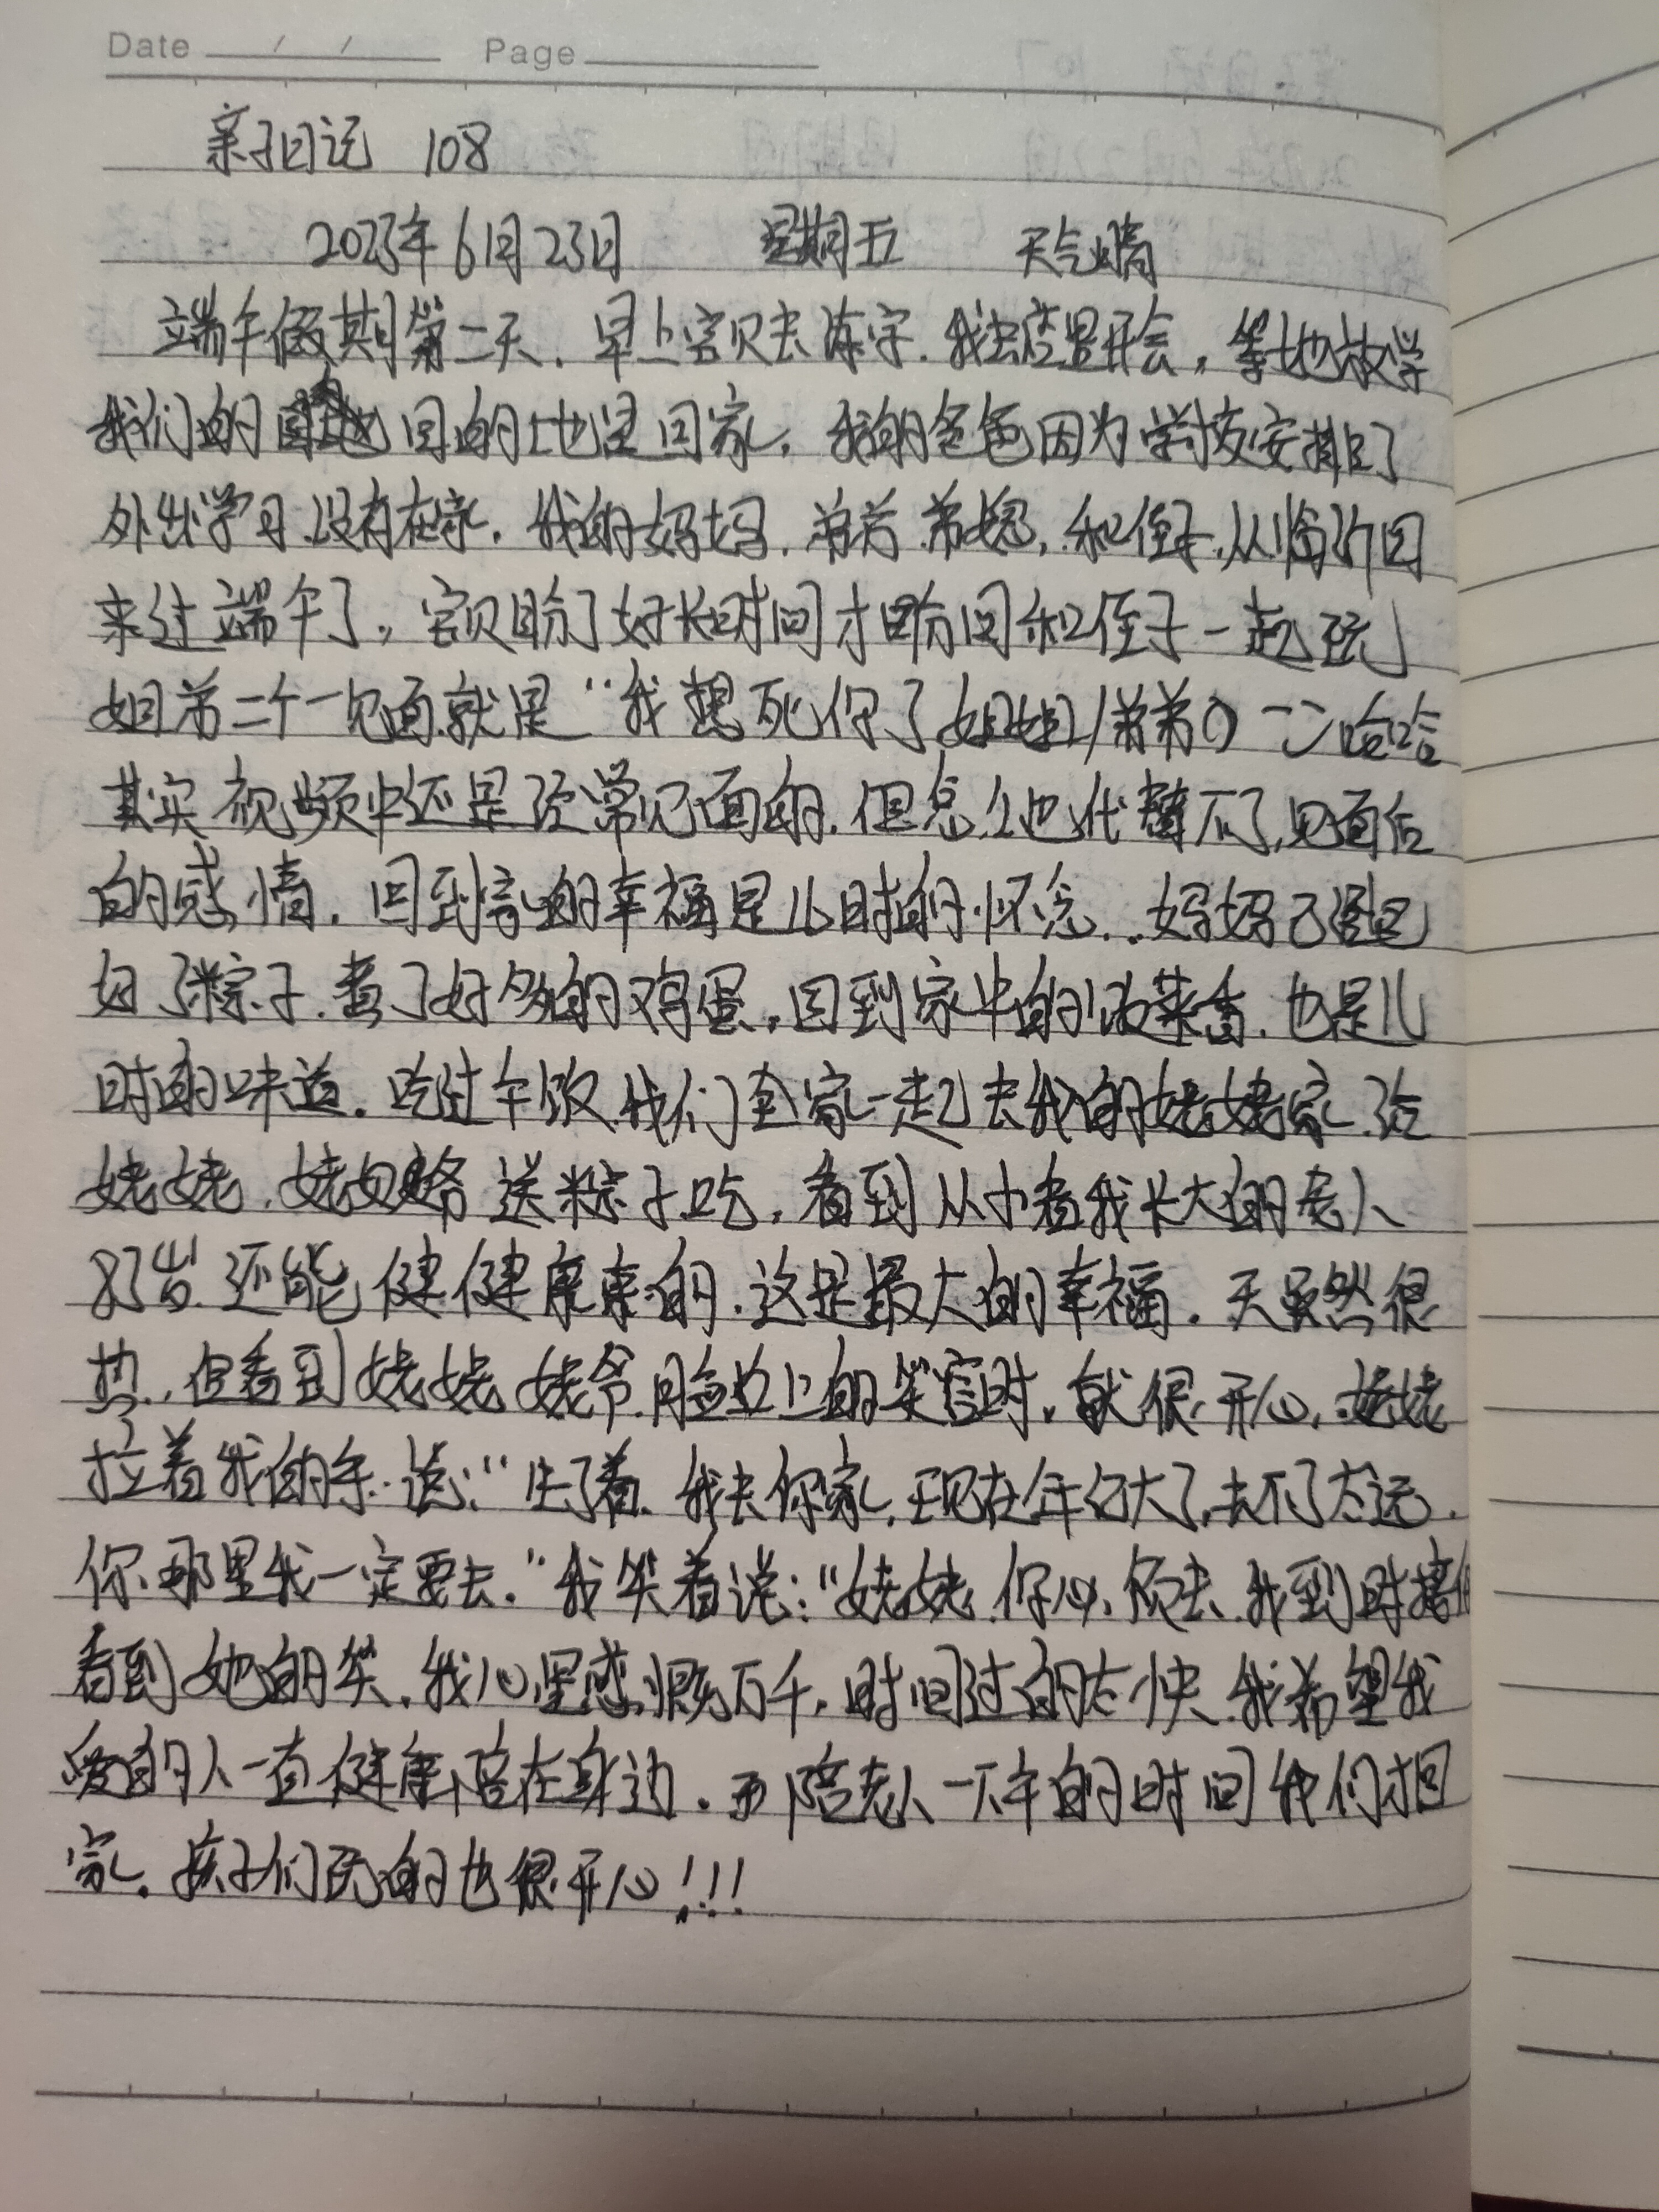 Date / / Page
亲子日记 108
2023年6月23日 星期五 天气晴
端午假期第二天，早上宝贝去练字，我去店里开会，等她放学
我们的回的地里回家，我的爸爸因为学校安排了
外出学习没有在家，我的妈妈，弟弟，弟媳，和侄子，从临沂回
来过端午了，宝贝盼了好长时间才盼回和侄子一起玩
姐弟二个一见面就是“我想死你了姐姐/弟弟 哈哈
其实视频中还是经常见面的，但怎么也代替不了，见面后
的感情，回到家的幸福是儿时的怀念，妈妈已经包
好了粽子，煮了好多的鸡蛋，回到家中的饭菜香，也是儿
时的味道，吃过午饭我们全家一起去我的姥姥家，给
姥姥，姥爷送粽子吃，看到从小看我长大的老人
87岁还能健健康康的，这是最大的幸福，天虽然很
热，但看到姥姥姥爷脸上的笑容时，就很开心，姥姥
拉着我的手说：“生了着，我去你家，现在年纪大了，去不了太远，
你那里我一定要去。”我笑着说：“姥姥你必须去，我到时接你
看到她的笑，我心里感慨万千，时间过的太快，我希望我
爱的人一直健康陪在身边，再陪老人一下午的时间我们才回
家，孩子们玩的也很开心！！！